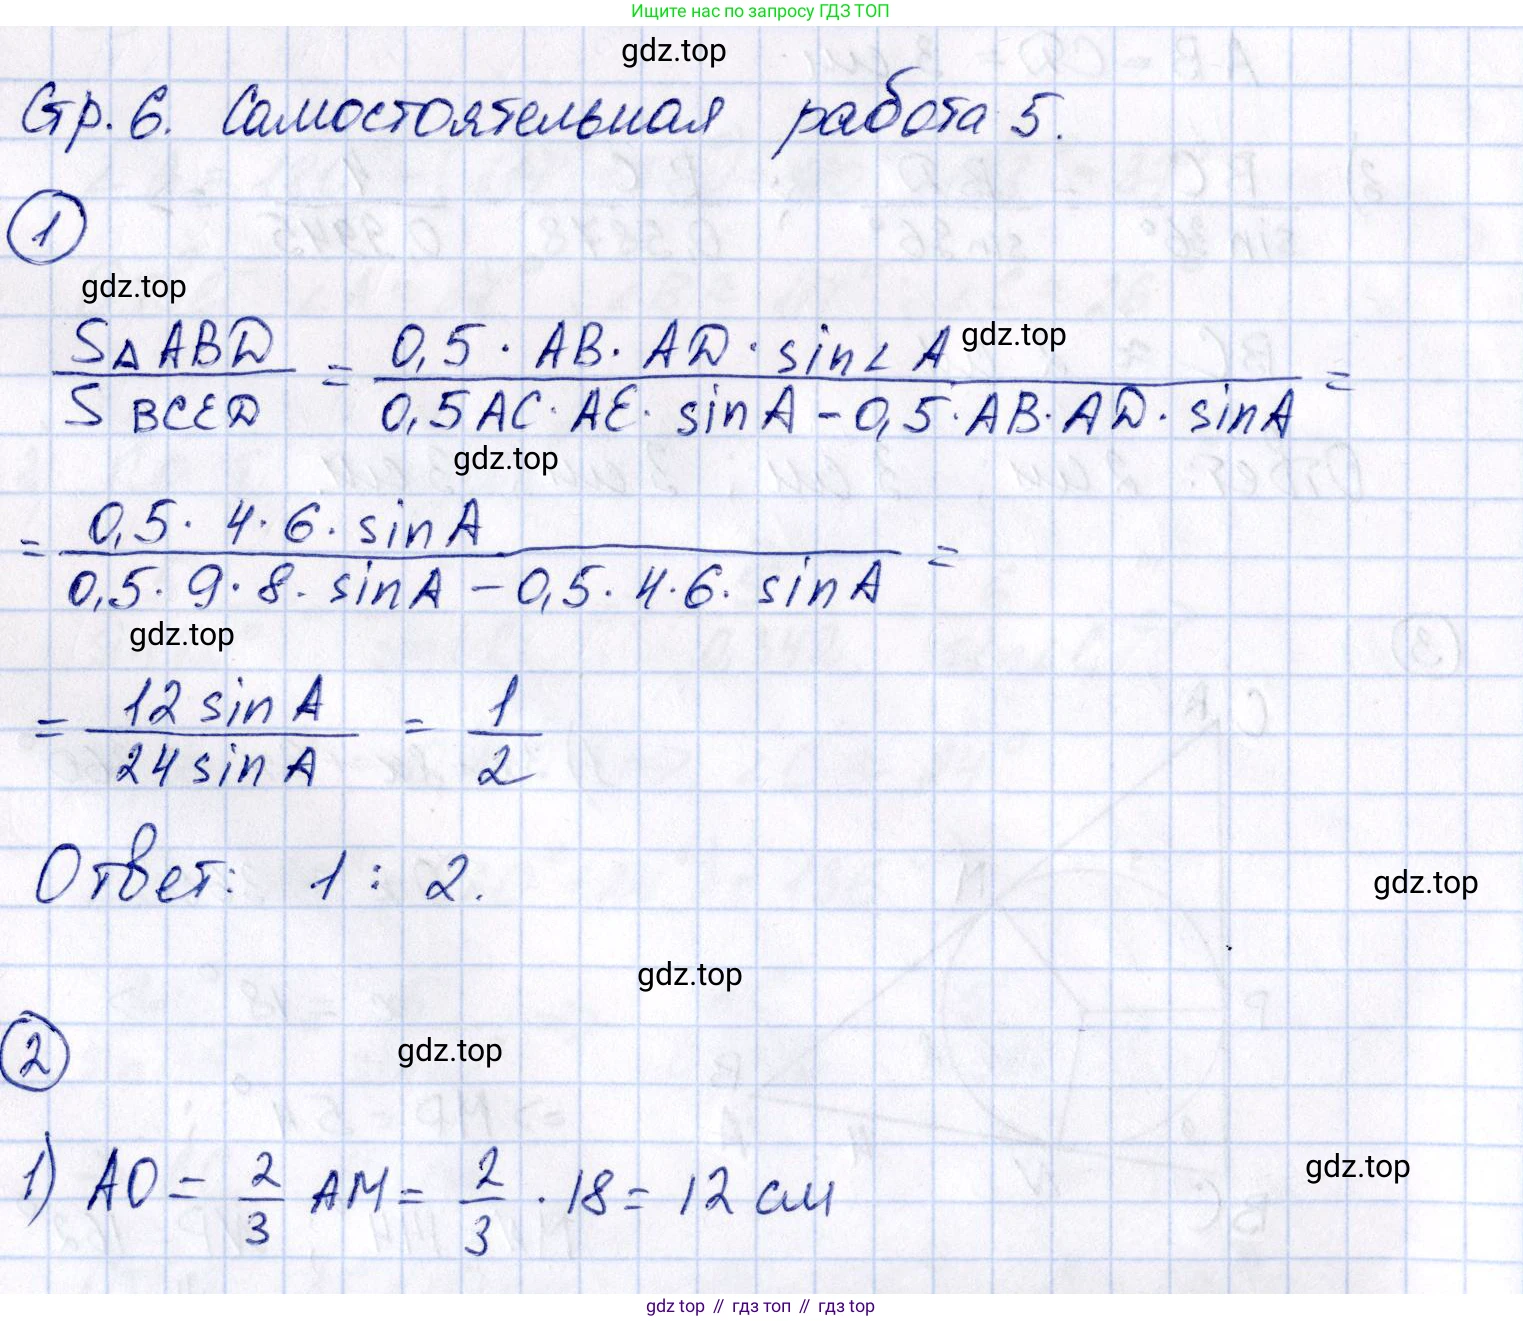 Ищите нас по запросу ГДЗ ТОП
gdz.top
Стр. 6. Самостоятельная работа 5.
1
gdz.top
S△ABD / S BCED = 0,5 · AB · AD · sin∠A / 0,5 AC · AE · sin A − 0,5 · AB · AD · sin A =
gdz.top
gdz.top
= 0,5 · 4 · 6 · sin A / 0,5 · 9 · 8 · sin A − 0,5 · 4 · 6 · sin A =
gdz.top
= 12 sin A / 24 sin A = 1/2
Ответ: 1 : 2.
gdz.top
gdz.top
2
gdz.top
1) AO = 2/3 AM = 2/3 · 18 = 12 см
gdz.top
gdz top // гдз топ // гдз top